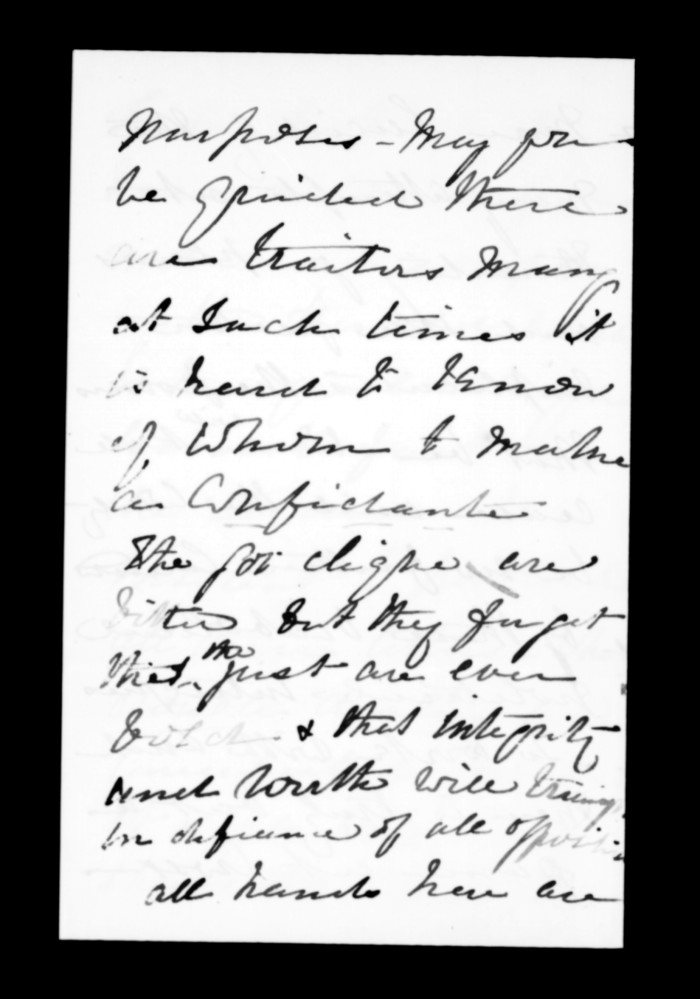 Purposes - May you
be guided there
are traitors many
at Such times it
is hard to Know
of Whom to make
a Confidante
The clique are
bitter but they forget
that the just are ever
bold & that integrity
and truth will triump
in defiance of all oppositi
all hands here are